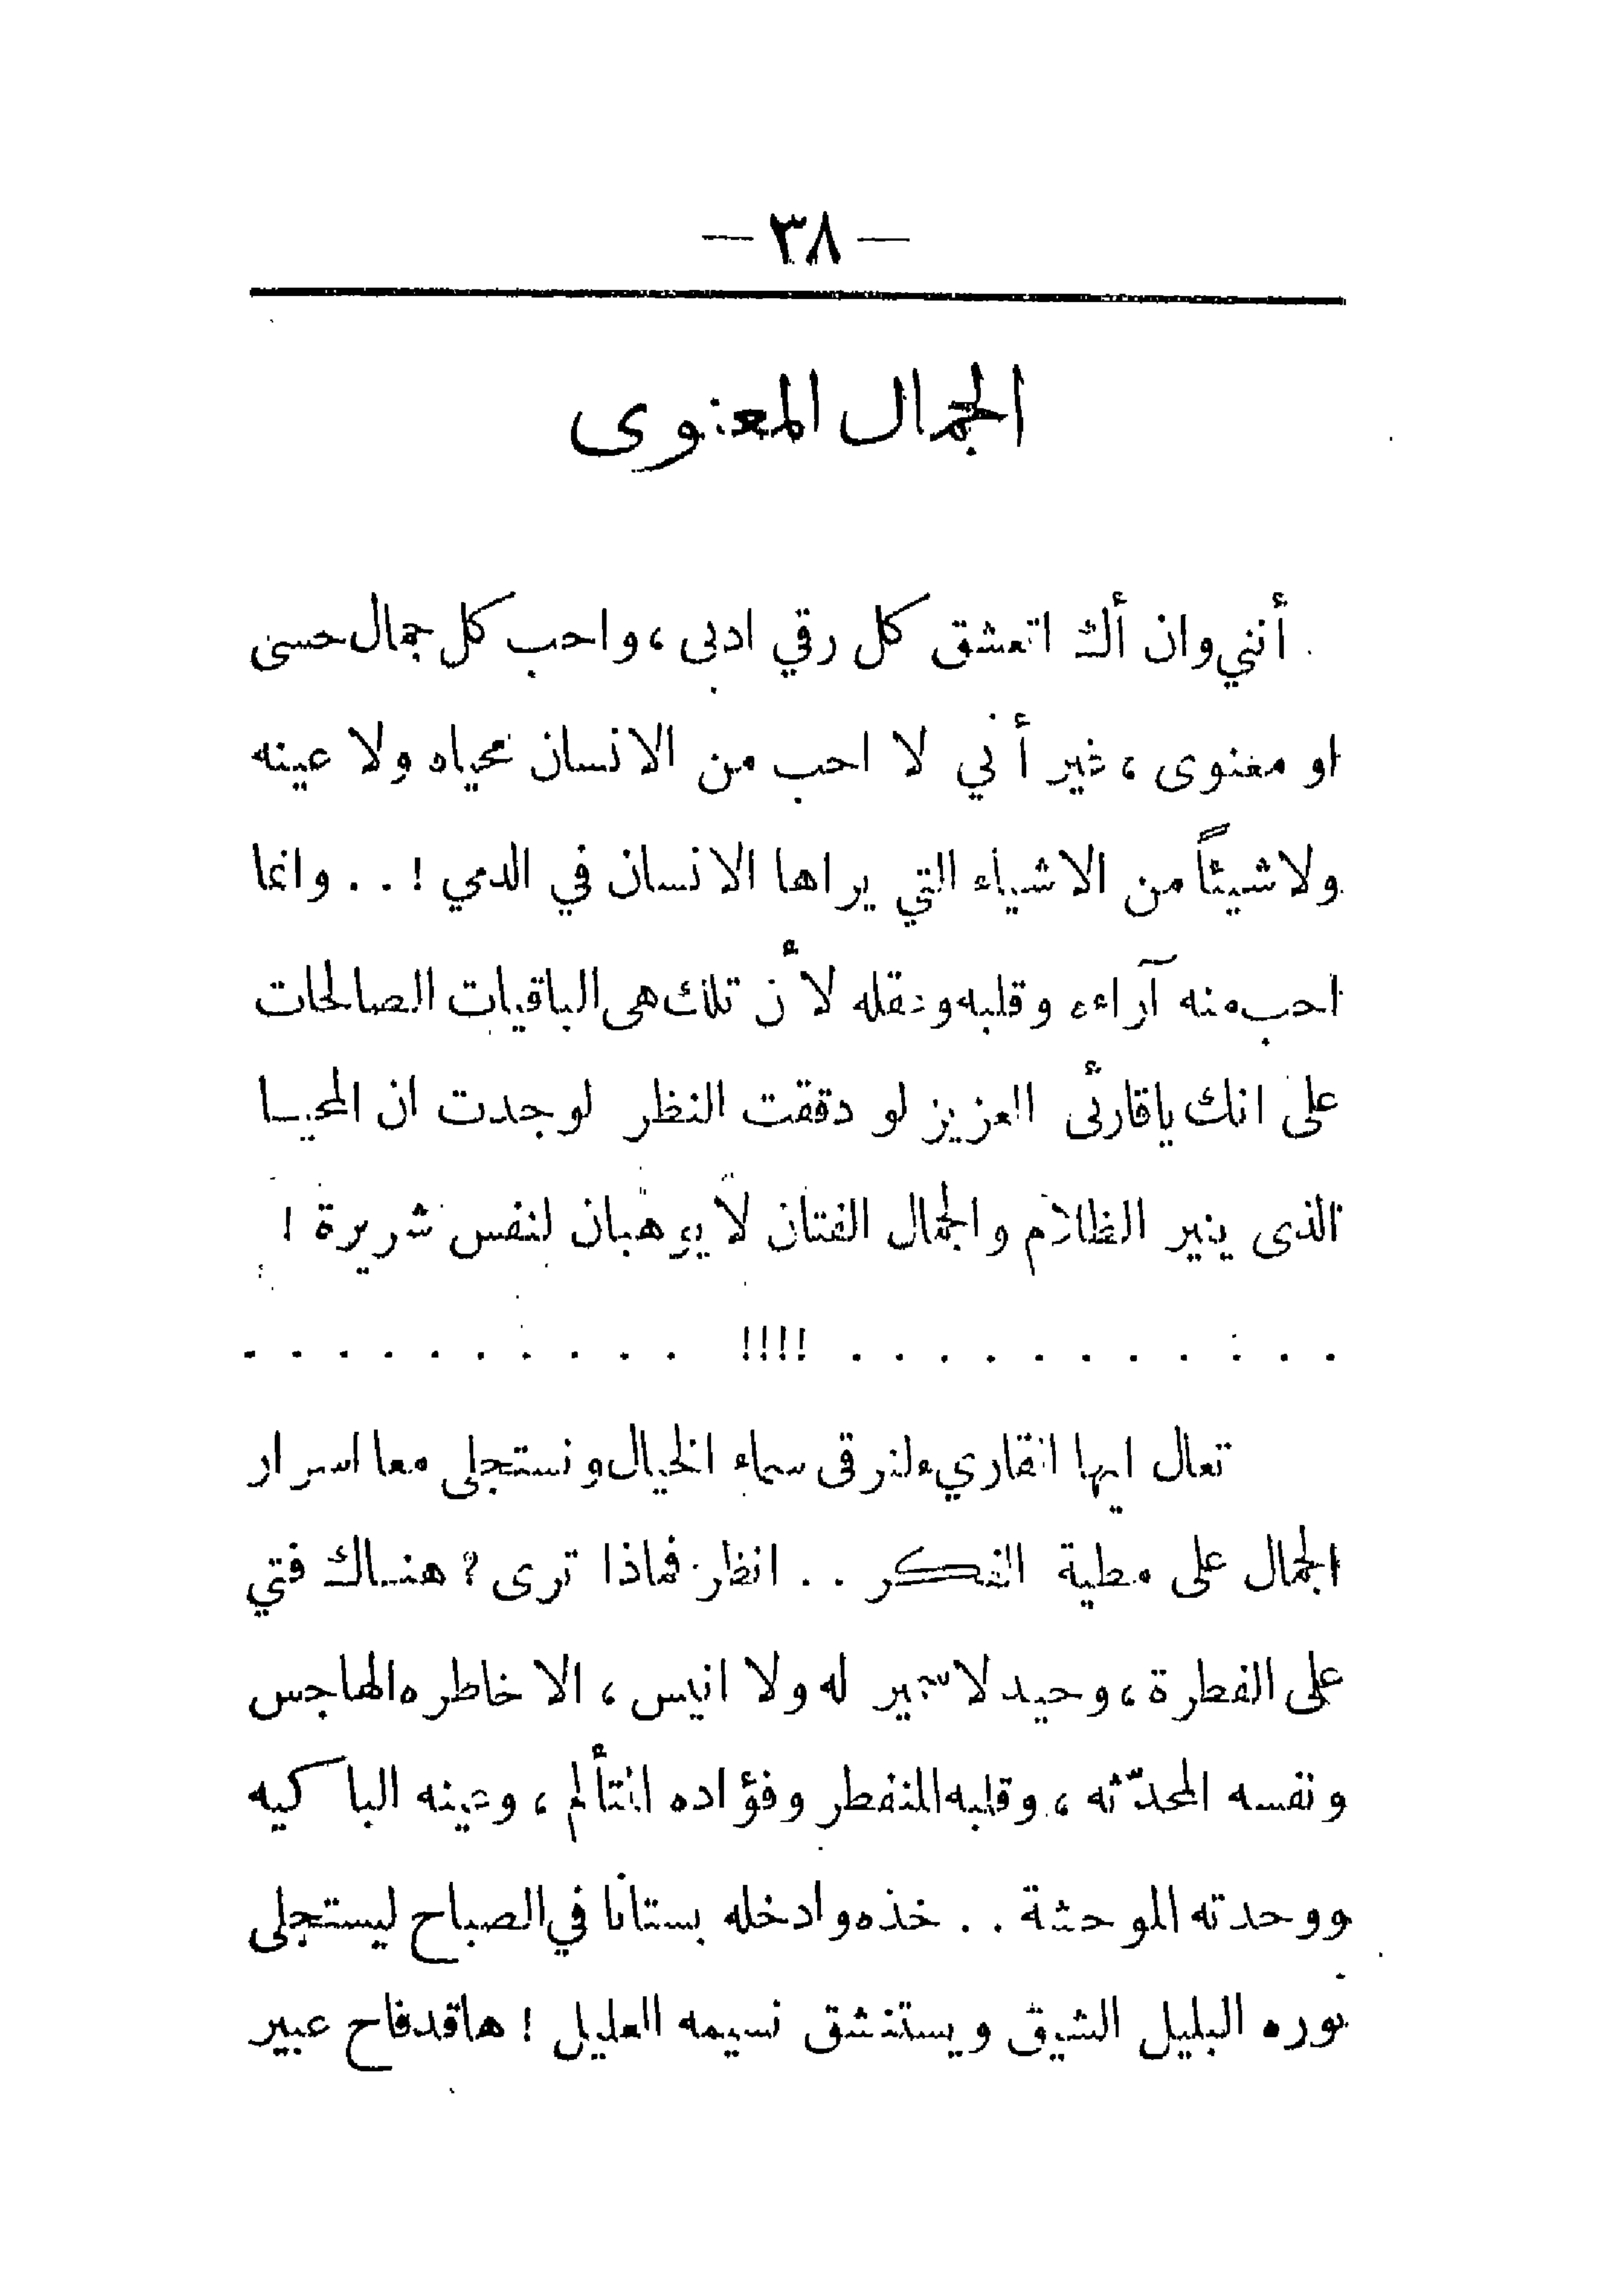 — ٣٨ —
الجمال المعنوى
أنني وان أك اتعشق كل رقي ادبى ، واحب كل جمال حسى
او معنوى ، غير أني لا احب من الانسان محياه ولا عينه
ولا شيئاً من الاشياء التي يراها الانسان في الدمي ! . . وانما
احب منه آراءه وقلبه وعقله لأن تلك هى الباقيات الصالحات
على انك ياقارئى العزيز لو دققت النظر لوجدت ان المحيا
الذى ينير الظلام والجمال الفتان لا يوهبان لنفس شريرة !
. . . . . . . . . . . !!!! . . . . . . . . . .
تعال ايها القاريء لنرقى سماء الخيال ونستجلى معا اسرار
الجمال على مطية الفكر . . انظر فماذا ترى ؟ هناك فتي
على الفطرة ، وحيد لا سمير له ولا انيس ، الا خاطره الهاجس
ونفسه المحدّثه ، وقلبه المنفطر وفؤاده المتألم ، وعينه الباكيه
ووحدته الموحشة . . خذه وادخله بستانا في الصباح ليستجلى
نوره البليل الشيق ويستنشق نسيمه العليل ! هاقد فاح عبير